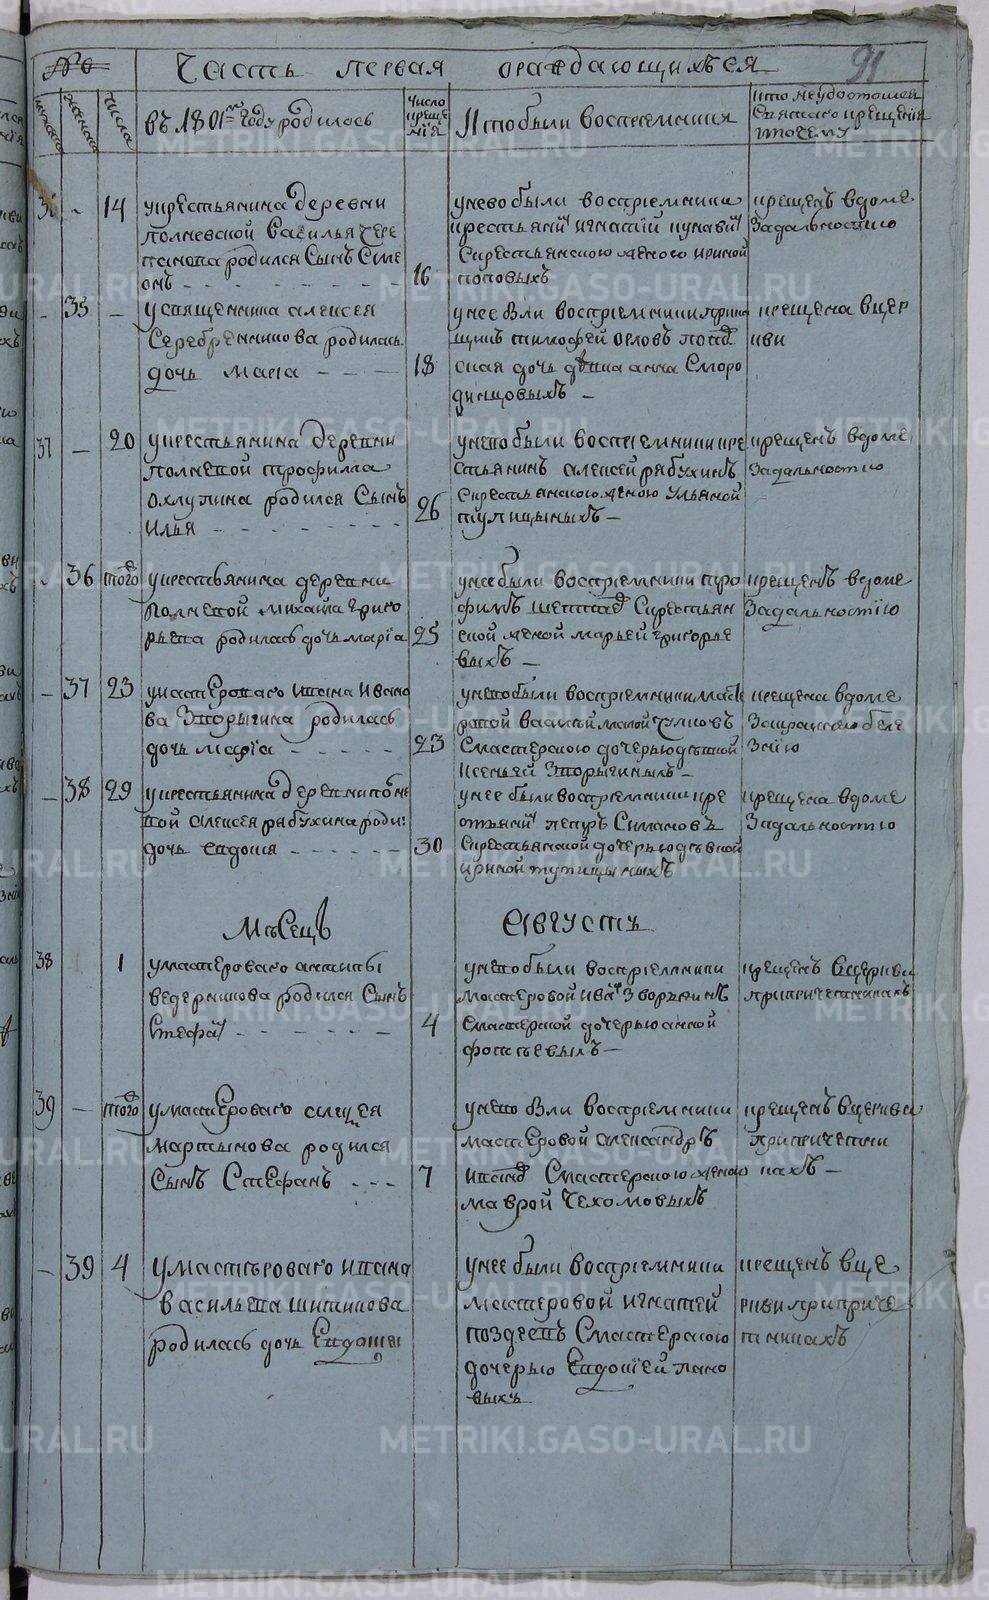 №
Часть первая ораждающихъся
91
мужеска
женска
числа
въ 1801м году родилось
число
креще
нїя
Кто были восприемники
кто неудостоилися
Святаго крещенїя
и почему
14
укрестьянина деревни
полневской Василья Чере
панова родился Сынъ Симе
онъ
16
унево были восприемники
крестьянй игнатїй
Скрестьянскою женою ириной
поповыхъ
крещенъ вдоме
Задальностию
35
усвященника алексея
Серебренникова родилась
дочь мариа
18
унее были восприемники
тимофей орловъ
ская дочь девица анна Сморо
динцовыхъ
крещена вцер
кви
37
20
укрестьянина деревни
полневой трофима
охлупина родился Сынъ
илья
26
унево были восприемники кре
стьянинъ алексей рябухинъ
Скрестьянскою женою ульяной
тупицыныхъ
крещенъ вдоме
Задальностїю
36
того
укрестьянина деревни
Полневой михаила григо
рьева родилась дочь марїа
25
унее были восприемники тро
фимъ Скрестьян
ской женой марьей григорье
выхъ
крещенъ вдоме
Задальностїю
37
23
умастероваго ивана ивано
ва Зворыгина родилась
дочь марїа
23
унево были восприемники масте
ровой василий Чулковъ
Смастерскою дочерью девкой
Ксеньей Зворыгиныхъ
крещена вдоме
38
29
укрестьянина деревни полне
вой алексея рябухина роди:
дочь евдокия
30
унее были восприемники кре
стьянй петръ Симановъ
Скрестьянской дочерью девкой
ириной тупицыныхъ
крещена вдоме
Задальностию
Месецъ Августъ
38
1
умастероваго антипы
ведерникова родился Сынъ
Стефан
4
унево были восприемники
мастеровой ивань Зворыгинъ
Смастерской дочерью анной
фотеевыхъ
крещенъ вцеркви
припричетникахъ
39
того
умастероваго
мартынова родился
Сынъ Стефанъ
7
унево были восприемники
мастеровой александръ
Смастерскою женою
маврой Чехомовыхъ
крещенъ вцеркви
припричетни
кахъ
39
4
умастероваго ивана
васильева шитикова
родилась дочь Евдокия
унее были восприемники
мастеровой игнатей
поздеевъ Смастерскою
дочерью Евдокией пано
выхъ
крещенъ вце
ркви приприче
тникахъ
METRIKI.GASO-URAL.RU